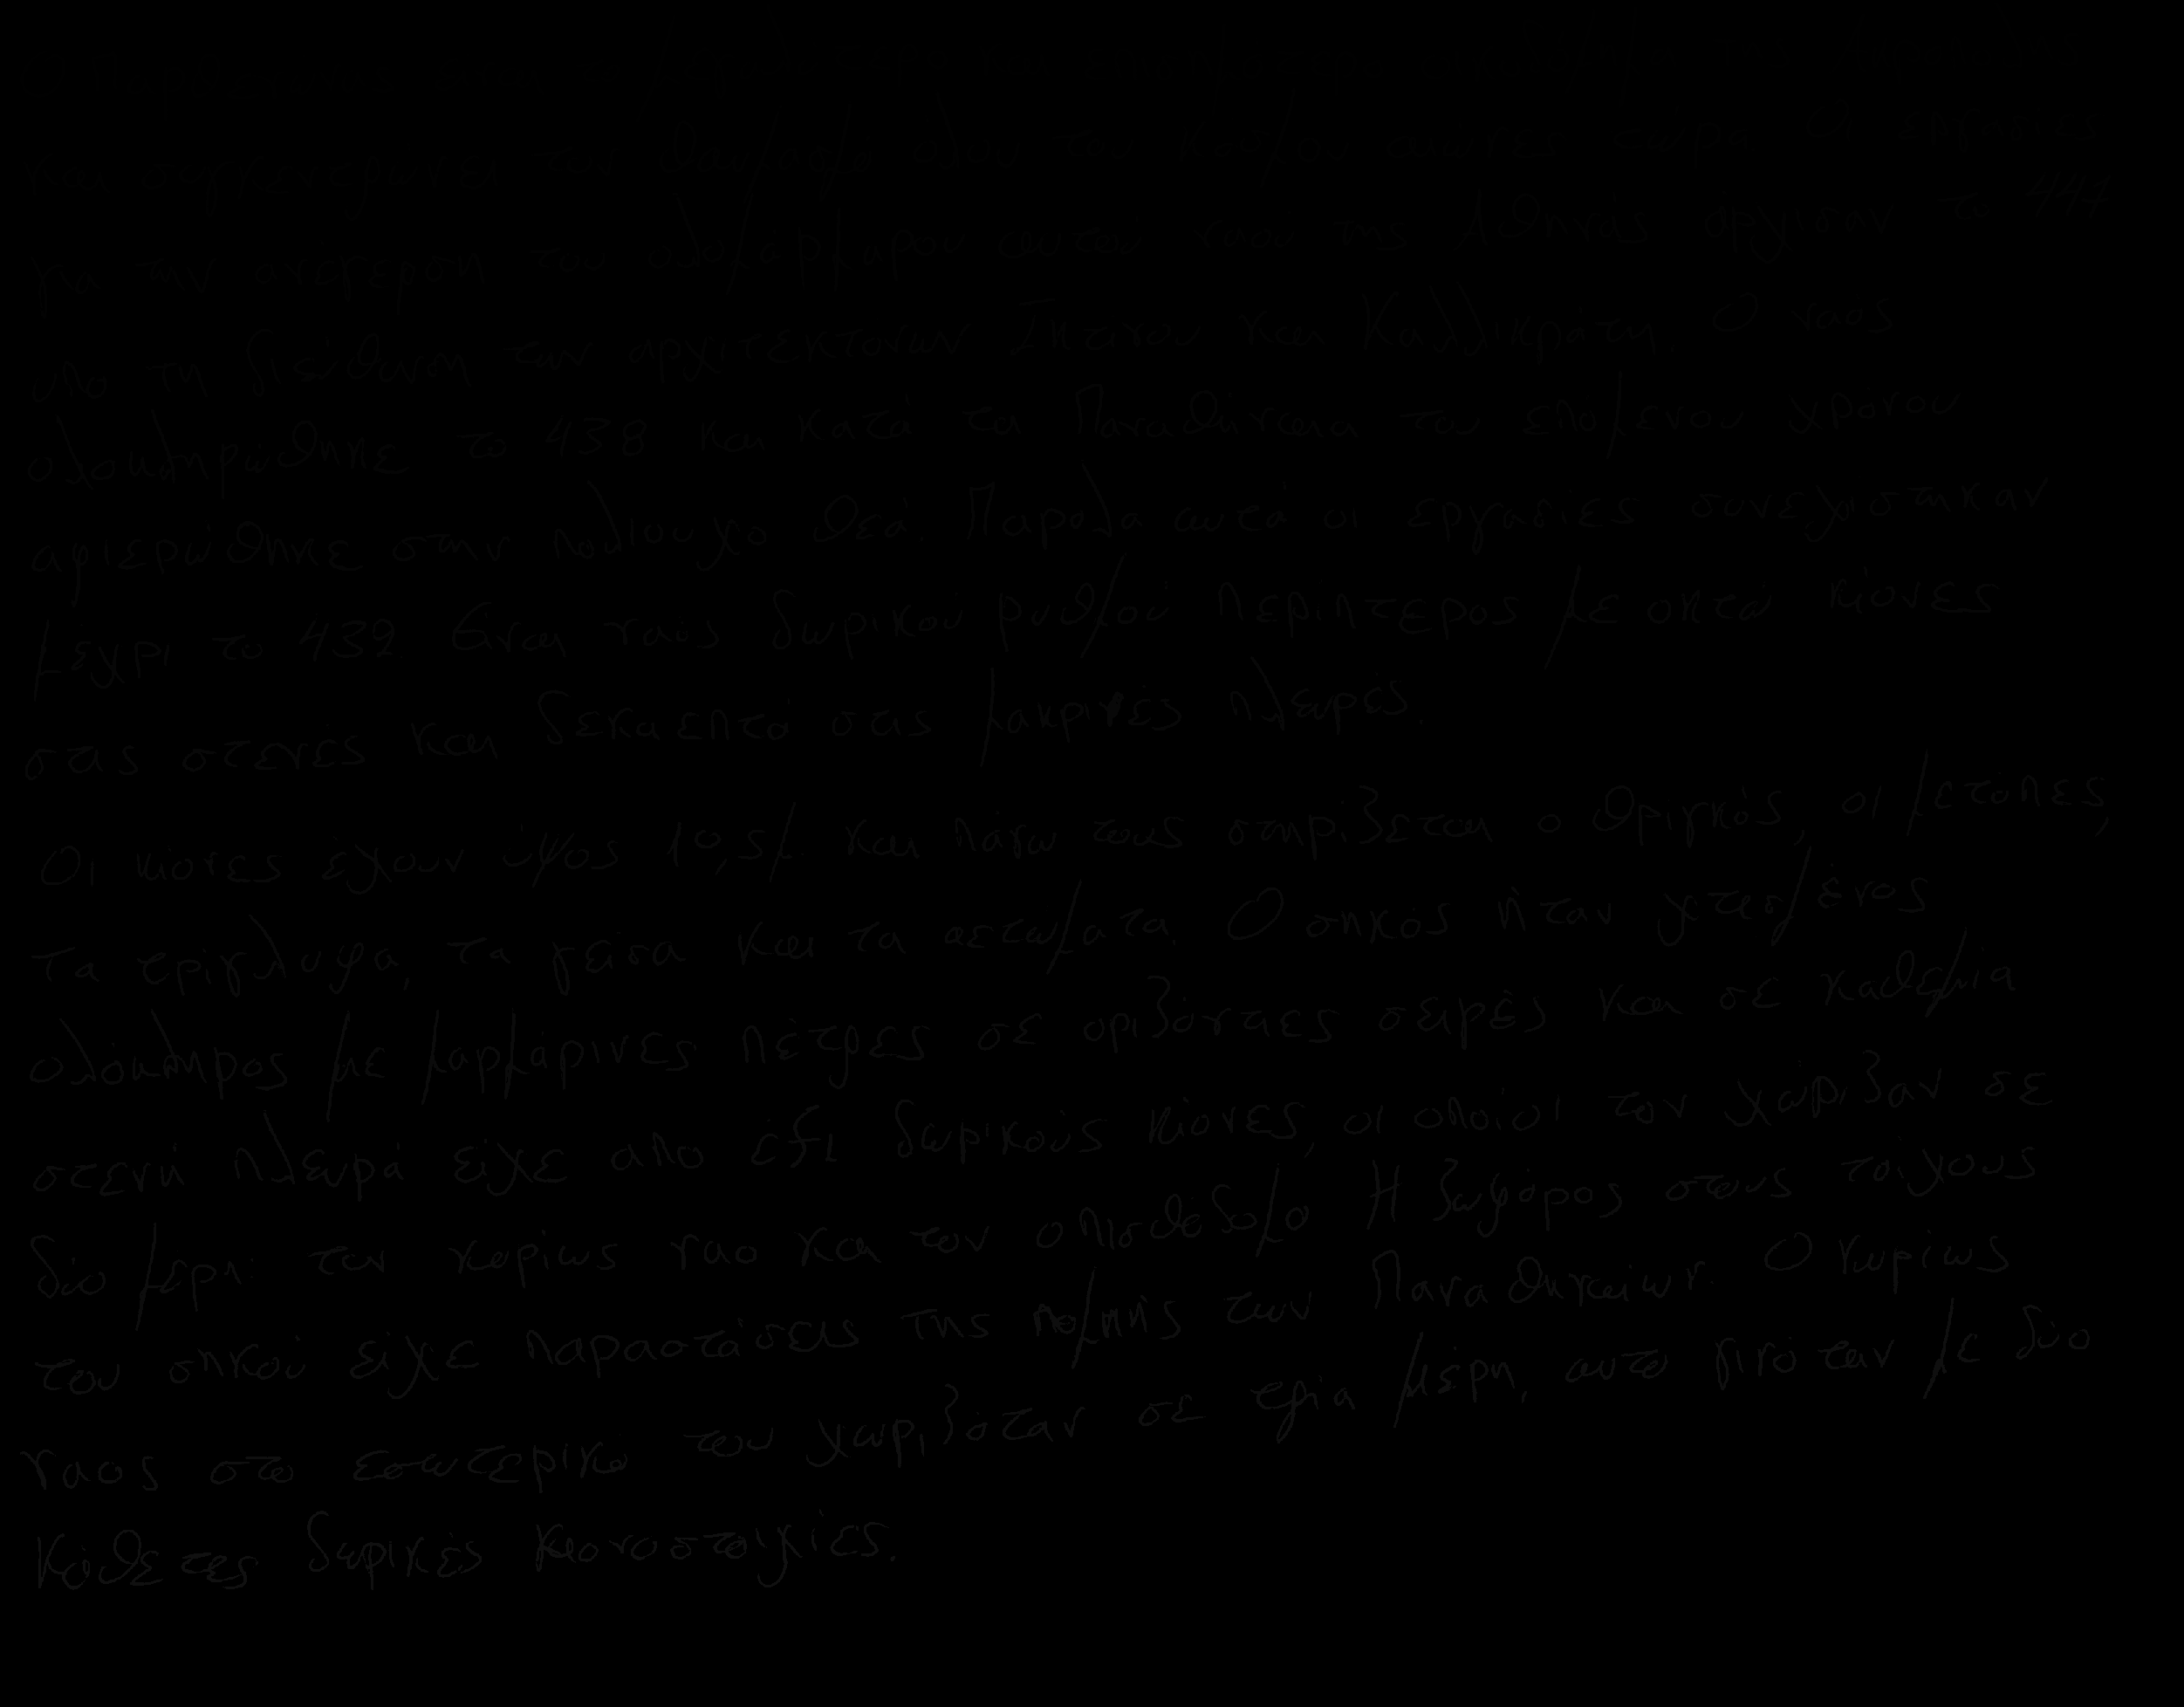 και συγκεντρώνει τον θαυμασμό όλου του κόσμου αιώνες τώρα. Οι εργασίες
για την ανέγερση του ολομάρμαρου αυτού ναού της Αθηνάς άρχισαν το 447
υπο τη διεύθυνση των αρχιτεκτόνων Ικτίνου και Καλλικράτη. Ο ναος
ολοκληρώθηκε το 438 και κατά τα Παναθήναια του επόμενου χρόνου
αφιερώθηκε στην πολιουχο θεά. Παρολα αυτά οι εργασίες συνεχιστηκαν
μέχρι το 432. Είναι ναός δωρικού ρυθμού περιπτερος με οκτώ κίονες
στις στενές και δεκαεπτά στις μακρινές πλευρές.
Οι κίονες έχουν ύψος 10,5μ. και πάνω τους στηρίζεται ο θριγκός, οι μετοπες,
τα τριγλυφα, τα γείσα και τα αετωματα. Ο σηκός ήταν χτισμένος
ολόκληρος με μαρμάρινες πέτρες σε οριζόντιες σειρές και σε καθεμία
στενή πλευρά είχε απο έξι δωρικούς κίονες, οι οποίοι τον χώριζαν σε
δύο μερη: τον κυρίως ναο και τον οπισθόδομο Η ζωφόρος στους τοίχους
του σηκού είχε παραστάσεις της πομπής των Παναθηναίων. Ο κυρίως
ναος στο εσωτερικό του χωριζόταν σε τρία μέρη, αυτο γινόταν με δύο
κάθετες δωρικές κιονοστοιχίες.